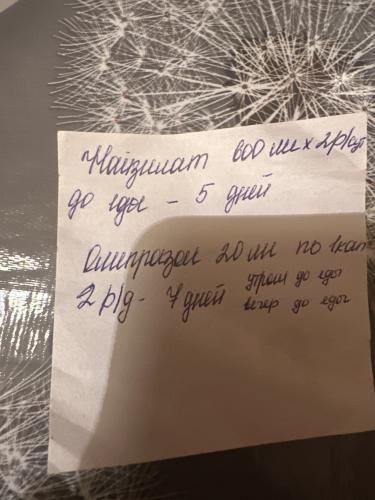 Найзилат 600 мг х 2р/сут
до еды - 5 дней
Омепразол 20 мг по 1 кап
2 р/д - 7 дней утром до еды
вечер до еды